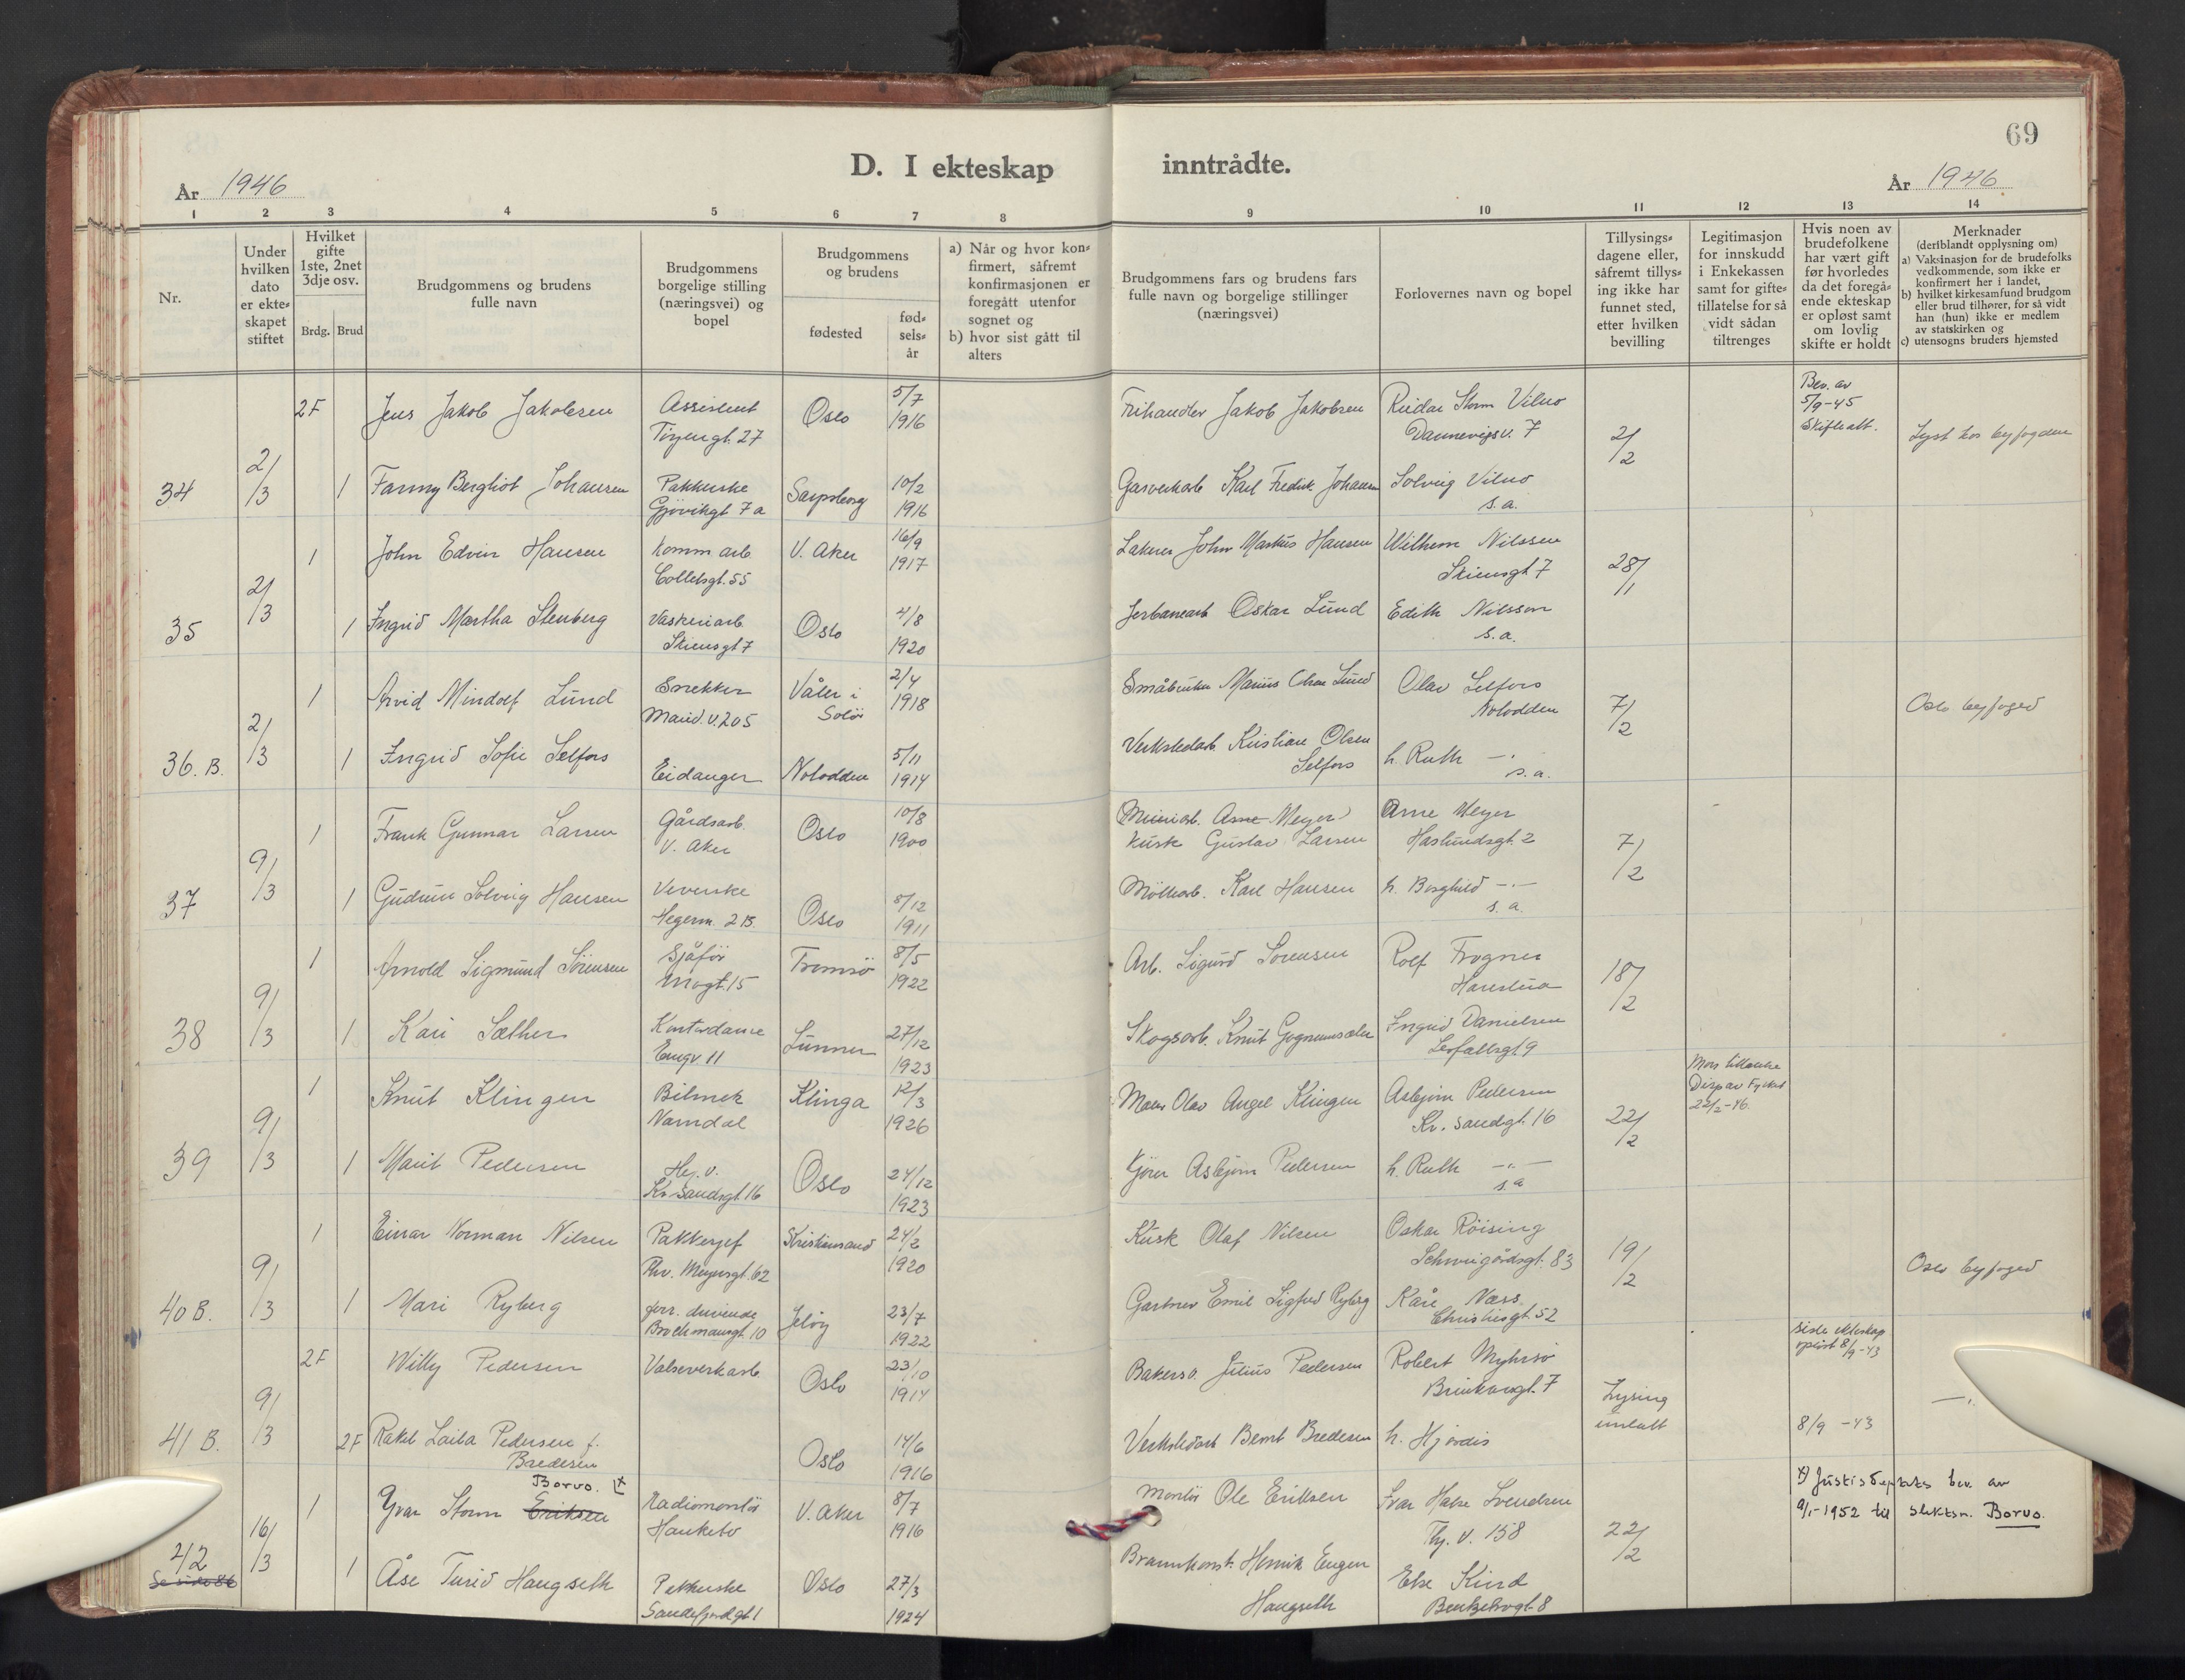 69
D. I ekteskap inntrådte.
År 1946
År 1946
1 2 3 4 5 6 7 8 9 10 11 12 13 14
Nr.
Under hvilken dato er ekteskapet stiftet
Hvilket gifte 1ste, 2net 3dje osv.
Brdg. Brud
Brudgommens og brudens fulle navn
Brudgommens borgelige stilling (næringsvei) og bopel
Brudgommens og brudens
fødested
fødselsår
a) Når og hvor konfirmert, såfremt konfirmasjonen er foregått utenfor sognet og
b) hvor sist gått til alters
Brudgommens fars og brudens fars fulle navn og borgelige stillinger (næringsvei)
Forlovernes navn og bopel
Tillysingsdagene eller, såfremt tillysing ikke har funnet sted, etter hvilken bevilling
Legitimasjon for innskudd i Enkekassen samt for giftetillatelse for så vidt sådan tiltrenges
Hvis noen av brudefolkene har vært gift før hvorledes da det foregående ekteskap er opløst samt om lovlig skifte er holdt
Merknader (deriblandt opplysning om)
a) Vaksinasjon for de brudefolks vedkommende, som ikke er konfirmert her i landet,
b) hvilket kirkesamfund brudgom eller brud tilhører, for så vidt han (hun) ikke er medlem av statskirken og
c) utensogns bruders hjemsted
2F Jens Jakob Jakobsen Assistent Tøyengt. 27 Oslo 5/7 1916 Jakob Jakobsen Reidar Storm Vilno 7 2/2 Bev. av 5/9-45 Skifteatt. Lyst hos byfogden
34 2/3 1 Fanny Bergliot Johansen Pakkerske Gjøvikgt. 7a Sarpsborg 10/2 1916 Gasverkarb. Karl Fredrik Johansen Solveig Vilno s.a.
1 John Edvin Hansen Komm arb. Colletsgt. 55 V. Aker 16/9 1917 John Markus Hansen Wilhem Nilssen Skiensgt 7 28/1
35 2/3 1 Ingrid Martha Stenberg Vaskeriarb. Skiensgt 7 Oslo 4/8 1920 Jerbanearb Oskar Lund Edith Nilsson s.a.
1 Arvid Mindolf Lund Snekker Marid.v. 205 Våler i Solør 2/4 1918 Småbruker Marius Olsen Lund Olav Selfors Notodden 7/2 Oslo byfoged
36. B. 2/3 1 Ingrid Sofie Selfors Eidanger Notodden 5/11 1914 Verkstedarb. Kristian Olsen Selfors h. Ruth -"- s.a.
1 Frank Gunnar Larsen Gårdsarb. V. Aker Oslo 10/8 1900 Kusk Gustav Larsen Arne Meyer Haslundsgt. 2 7/2
37 9/3 1 Gudrun Solveig Hansen Veverske Hegerm. 2B. Oslo 8/12 1911 Møllearb. Karl Hansen h. Borghild -"- s.a.
1 Arnold Sigmund Sørensen Sjåfør 15 Tromsø 8/5 1922 Arb. Sigurd Sørensen Rolf Frogner Harestua 18/2
38 9/3 1 Kari Sæther Kontordame Engv 11 Lunner 27/12 1923 Skogsarb. Knut Ingrid Danielsen 9
1 Knut Klingen Bilmek Namdal Klinga 12/3 1926 Olav Angel Klingen Asbjørn Pedersen Kr. sandgt. 16 22/2 Mors tillatelse Disp av Fylket 22/2-46.
39 9/3 1 Marit Pedersen Hj. v. Kr. sandsgt. 16 Oslo 24/12 1923 Kjører Asbjørn Pedersen h. Ruth -"- s.a
1 Einar Norman Nilsen Pakkersjef Thv. Meyersgt. 62 Kristiansand 24/2 1920 Kusk Olaf Nilsen Oskar Røising Schweigårdsgt. 83 19/2 Oslo byfoged
40 B. 9/3 1 Mari Ryberg forr. drivende Brochmansgt. 10 Jeløy 23/7 1922 Gartner Emil Sigfred Ryberg Kåre Næss Christiesgt. 52
2F Willy Pedersen Valseverkarb. Oslo 23/10 1914 Bakersv. Julius Pedersen Robert Myhrsø 7 Lysing unlatt siste ekteskap opløst 8/9-43 -"-
41 B. 9/3 2F Rakel Laila Pedersen f. Bredesen Oslo 14/6 1916 Verkstedarb Bernt Bredesen h. Hjørdis 8/9-43
1 Yvar Storm Eriksen Borvo. x Radiomontør Hauketo V. Aker 8/7 1916 Montør Ole Eriksen Ivar Halse Svendsen Thj. v. 158 22/2 x) Justisdeptets bev. av 9/1-1952 til slektsn. Borvo.
42 16/3 1 Åse Turid Haugseth Pakkerske Sandefjordgt. 1 Oslo 27/3 1924 Brannkonst. Henrik Eugen Haugseth Else Kind 8
Se side 86